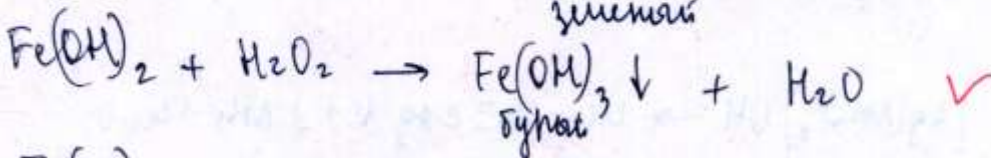 зеленый
Fe(OH)₂ + H₂O₂ → Fe(OH)₃↓ + H₂O ✓
бурый